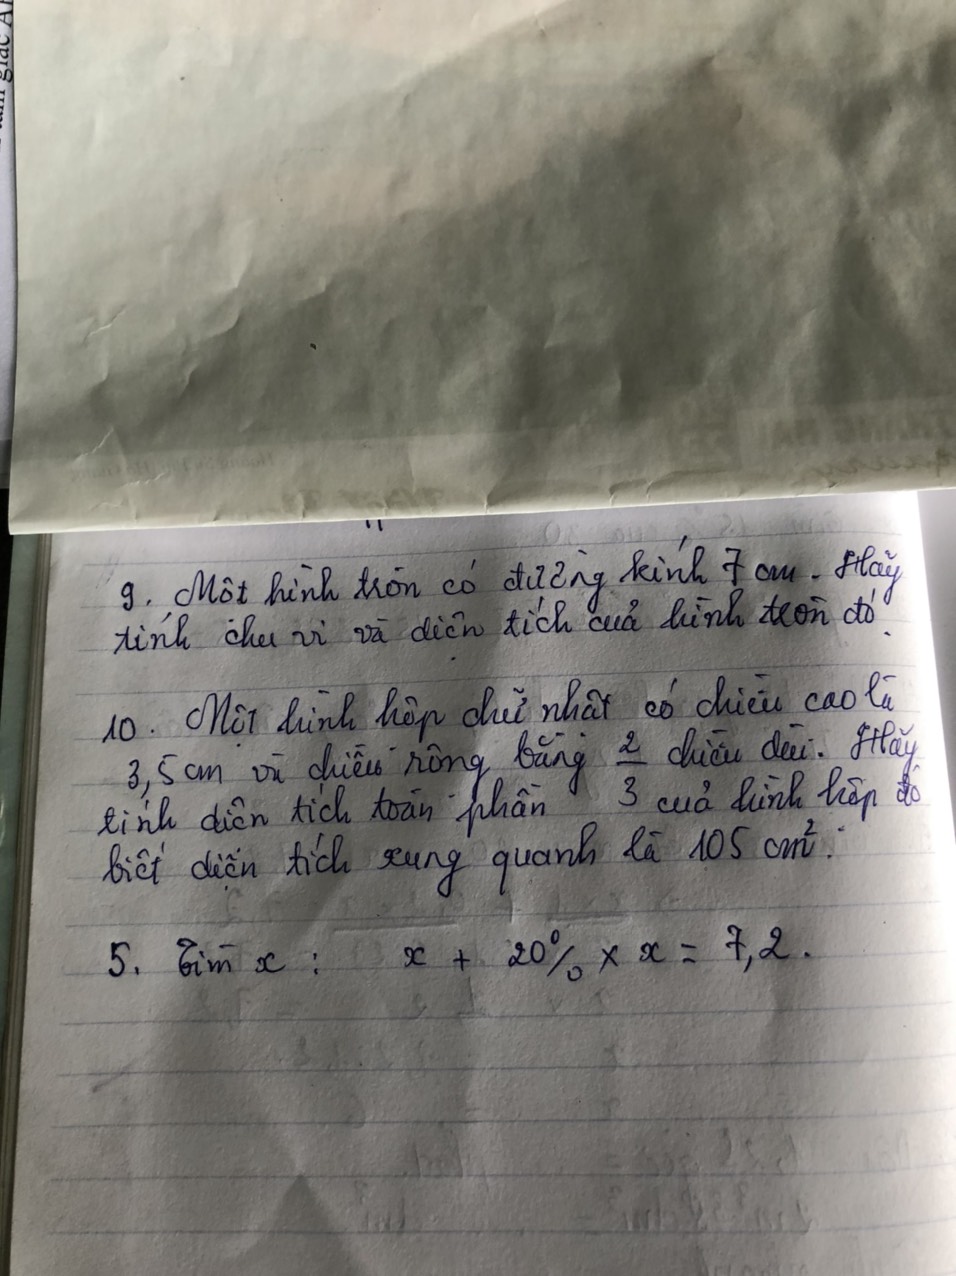 tam giác A
9. Một hình tròn có đường kính 7 cm. Hãy
tính chu vi và diện tích của hình tròn đó.
10. Một hình hộp chữ nhật có chiều cao là
3,5 cm và chiều rộng bằng 2/3 chiều dài. Hãy
tính diện tích toàn phần của hình hộp đó
biết diện tích xung quanh là 105 cm².
5. Tìm x : x + 20% × x = 7,2.